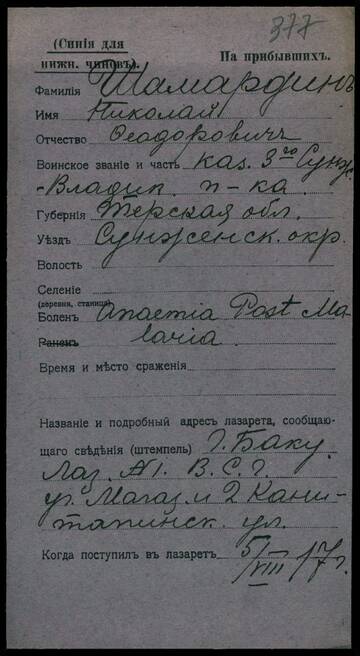 377
(Синія для
нижн. чиновъ).
На прибывшихъ.
Фамилія Шамардинъ
Имя Николай
Отчество Ѳеодоровичъ
Воинское званіе и часть каз. 3го Сунж.
-Владик. п-ка.
Губернія Терская обл.
Уѣздъ Сунженск. окр.
Волость
Селеніе
(деревня, станица)
Боленъ Anaemia Post Ma-
Раненъ laria.
Время и мѣсто сраженія
Названіе и подробный адресъ лазарета, сообщаю-
щаго свѣдѣнія (штемпель) г. Баку.
Лаз. №1. В.С.Г.
уг. Магаз. и 2 Кани-
тапинск. ул.
Когда поступилъ въ лазаретъ 5/VIII 17 г.